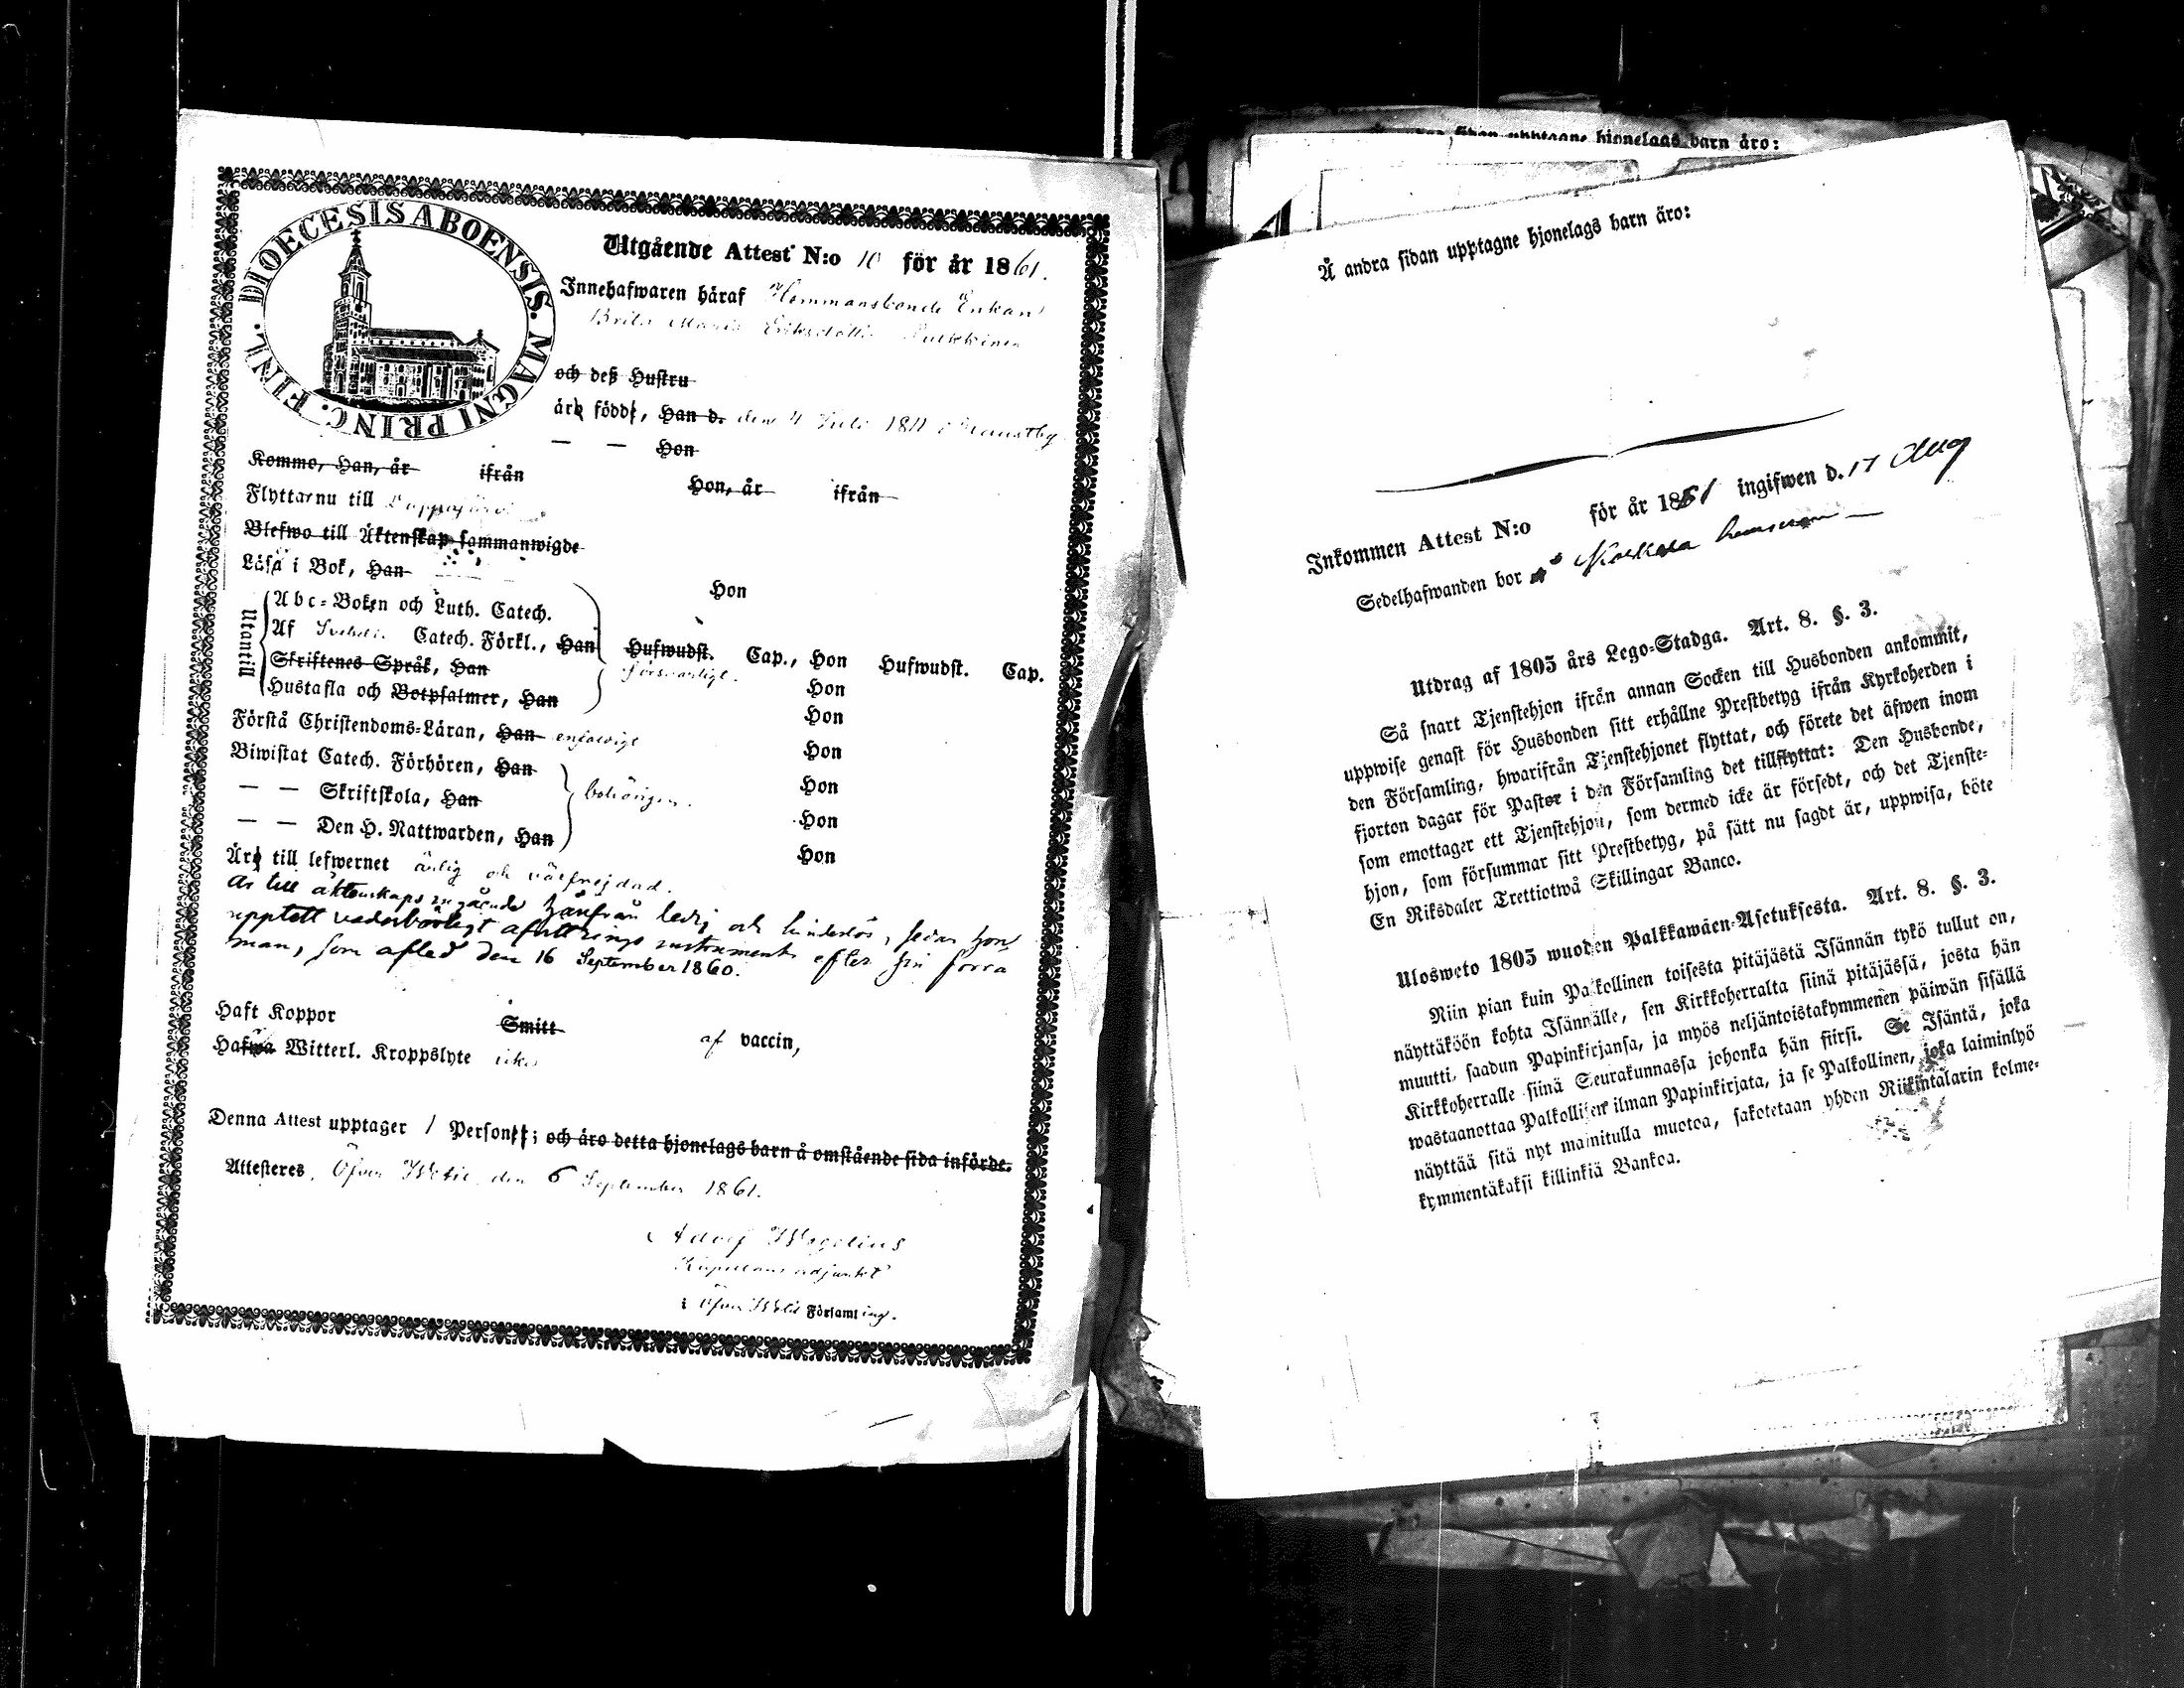 DIOECESIS ABOENSIS. MAGNI PRINC. FINL.
Utgående Attest N:o 10 för år 1861.
Innehafwaren häraf Hemmansbonde Enkan
Brita Maria Eriksdotter
och deß Hustru
äro född, Han d. den 4 Juli 1811 i
— — Hon
Kommo, Han, år ifrån Hon, år ifrån
Flyttar nu till Lappajärvi
Blefwo till Äktenskap sammanwigde
Läsa i Bok, Han Hon
Utantill
Abc-Boken och Luth. Catech.
Af Svebelii Catech. Förkl., Han Hufwudst. Cap., Hon Hufwudst. Cap.
Skriftenes Språk, Han försvarligt. Hon
Hustafla och Botpsalmer, Han Hon
Förstå Christendoms-Läran, Han enfaldigt Hon
Biwistat Catech. Förhören, Han Hon
— — Skriftskola, Han behörigen. Hon
— — Den H. Nattwarden, Han Hon
Äro till lefwernet ärlig och välfrejdad.
Är till äktenskaps ingående härifrån ledig och hinderslös, sedan hon
upptett vederbörligt afvittrings instrument efter sin förra
man, som afled den 16 September 1860.
Haft Koppor Smitt af vaccin,
Hafwa Witterl. Kroppslyte icke
Denna Attest upptager 1 Person; och äro detta hjonelags barn å omstående sida införde.
Attesteres, Öfver Wetil den 6 September 1861.
Adolf Wegelius
Kapellans adjunkt
i Öfver Wetil Församling.
sidan upptagne hjonelags barn äro:
Å andra sidan upptagne hjonelags barn äro:
Inkommen Attest N:o för år 1861 ingifwen d. 17 Aug
Sedelhafwanden bor
Utdrag af 1805 års Lego-Stadga. Art. 8. §. 3.
Så snart Tjenstehjon ifrån annan Socken till Husbonden ankommit,
uppwise genast för Husbonden sitt erhållne Prestbetyg ifrån Kyrkoherden i
den Församling, hwarifrån Tjenstehjonet flyttat, och förete det äfwen inom
fjorton dagar för Pastor i den Församling det tillflyttat: Den Husbonde,
som emottager ett Tjenstehjon, som dermed icke är försedt, och det Tjenste-
hjon, som försummar sitt Prestbetyg, på sätt nu sagdt är, uppwisa, böte
En Riksdaler Trettiotwå Skillingar Banco.
Ulosweto 1805 wuoden Palkkawäen-Asetuksesta. Art. 8. §. 3.
Niin pian kuin Palkollinen toisesta pitäjästä Isännän tykö tullut on,
näyttäköön kohta Isännälle, sen Kirkkoherralta siinä pitäjässä, josta hän
muutti, saadun Papinkirjansa, ja myös neljäntoistakymmenen päiwän sisällä
Kirkkoherralle siinä Seurakunnassa johonka hän siirsi. Se Isäntä, joka
wastaanottaa Palkollisen ilman Papinkirjata, ja se Palkollinen, joka laiminlyö
näyttää sitä nyt mainitulla muotoa, sakotetaan yhden Riikintalarin kolme-
kymmentäkaksi killinkiä Bankoa.